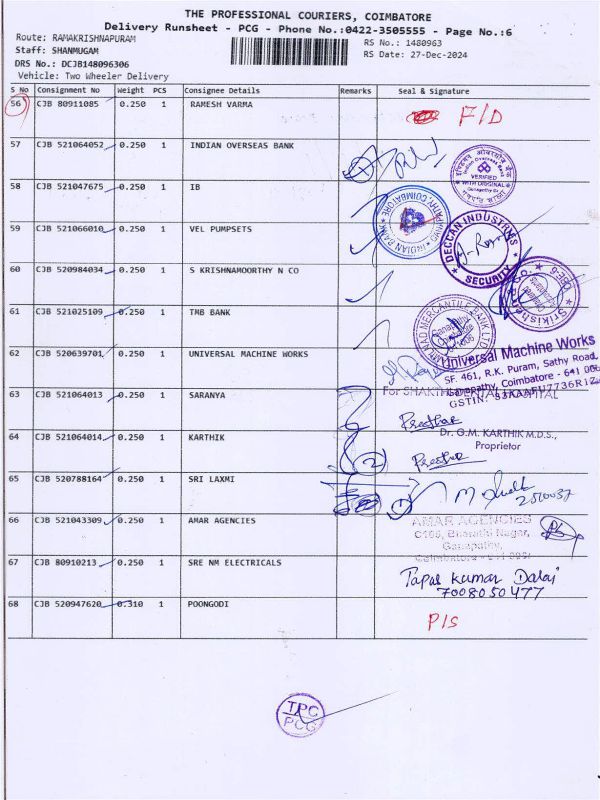 THE PROFESSIONAL COURIERS, COIMBATORE
Delivery Runsheet - PCG - Phone No.:0422-3505555 - Page No.:6
Route: RAMAKRISHNAPURAM
RS No.: 1480963
Staff: SHANMUGAM
RS Date: 27-Dec-2024
DRS No.: DCJB148096306
Vehicle: Two Wheeler Delivery
S No Consignment No Weight PCS Consignee Details Remarks Seal & Signature
56 CJB 80911085 0.250 1 RAMESH VARMA F/D
57 CJB 521064052 0.250 1 INDIAN OVERSEAS BANK
Indian Overseas Bank
VERIFIED
WITH ORIGINAL
58 CJB 521047675 0.250 1 IB
INDIAN BANK
COIMBATORE
59 CJB 521066010 0.250 1 VEL PUMPSETS
DECCAN INDUSTRIES
SECURITY
60 CJB 520984034 0.250 1 S KRISHNAMOORTHY N CO
61 CJB 521025109 0.250 1 TMB BANK
MERCANTILE BANK LTD
62 CJB 520639701 0.250 1 UNIVERSAL MACHINE WORKS
Universal Machine Works
SF. 461, R.K. Puram, Sathy Road,
Ganapathy, Coimbatore - 641 006
GSTIN:
63 CJB 521064013 0.250 1 SARANYA
For SHAKTHI DENTAL HOSPITAL
64 CJB 521064014 0.250 1 KARTHIK
Dr. G.M. KARTHIK M.D.S.,
Proprietor
2
65 CJB 520788164 0.250 1 SRI LAXMI
66 CJB 521043309 0.250 1 AMAR AGENCIES
AMAR AGENCIES
C106, Bharathi Nagar,
Ganapathy,
67 CJB 80910213 0.250 1 SRE NM ELECTRICALS
Tapas Kumar Dalai
7008050477
68 CJB 520947620 0.310 1 POONGODI P/S
TPC
PCG